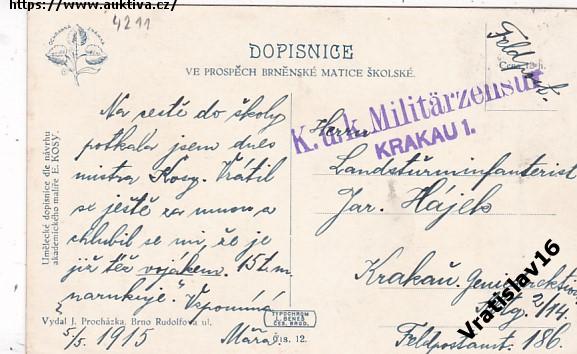 https://www.auktiva.cz/
4211
OCHRANNÁ ZNÁMKA
DOPISNICE
VE PROSPĚCH BRNĚNSKÉ MATICE ŠKOLSKÉ.
Cena 12 h.
Feldpost.
K. u. k. Militärzensur
KRAKAU 1.
Umělecké dopisnice dle návrhu
akademického malíře E. KOSY.
Na cestě do školy
potkala jsem dnes
mistra Kosy. Vrátil
se ještě za mnou a
chlubil se mi, že je
již též vojákem. 15 t. m.
narukuje." Vzpomíná
Máňa.
5/5 1915
Herrn
Landsturminfanterist
Jar. Hájek
Krakau. Geniedirektion
Abtg. 2/14.
Feldpostamt. 186.
Vydal J. Procházka, Brno Rudolfova ul.
TYPOCHROM
L. BENEŠ
ČES. BRUD.
Čís. 12.
Vratislav16